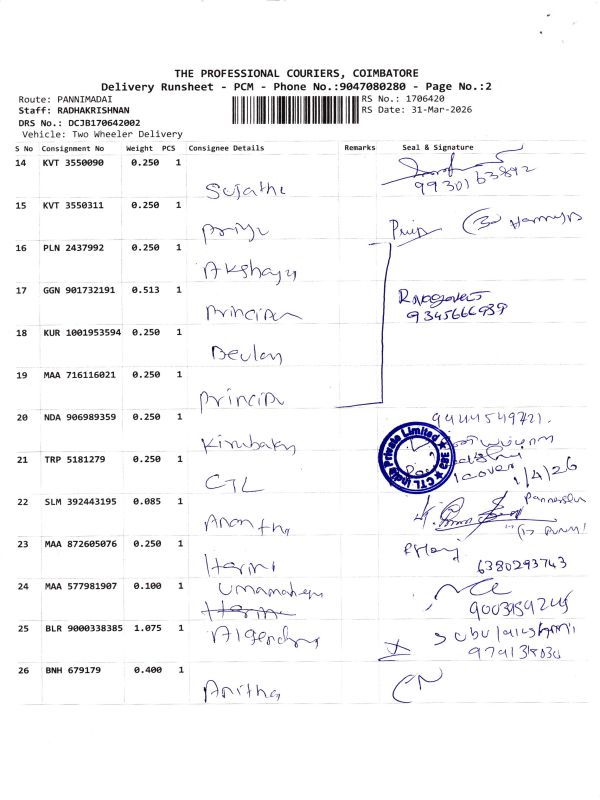 THE PROFESSIONAL COURIERS, COIMBATORE
Delivery Runsheet - PCM - Phone No.:9047080280 - Page No.:2
Route: PANNIMADAI
RS No.: 1706420
Staff: RADHAKRISHNAN
RS Date: 31-Mar-2026
DRS No.: DCJB170642002
Vehicle: Two Wheeler Delivery
S No Consignment No Weight PCS Consignee Details Remarks Seal & Signature
14 KVT 3550090 0.250 1
Sujatha
15 KVT 3550311 0.250 1
Priya
16 PLN 2437992 0.250 1
Akshaya
17 GGN 901732191 0.513 1
Principal
9345666939
18 KUR 1001953594 0.250 1
19 MAA 716116021 0.250 1
Princip
20 NDA 906989359 0.250 1
Kirubak
21 TRP 5181279 0.250 1
CTL
CTL India Private Limited
1/4/26
22 SLM 392443195 0.085 1
Anantha
23 MAA 872605076 0.250 1
Harini
6380293743
24 MAA 577981907 0.100 1
Umamahes
25 BLR 9000338385 1.075 1
26 BNH 679179 0.400 1
Anitha